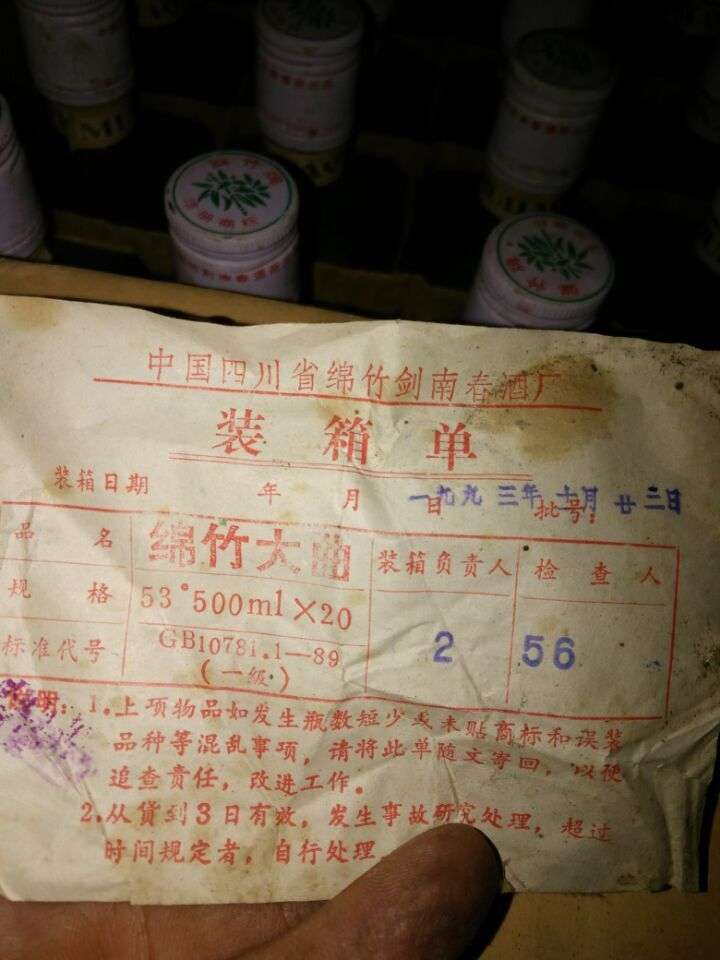 中国四川省绵竹剑南春酒厂
装箱单
装箱日期 年 月 日 批号:
一九九三年十月廿三日
品名 绵竹大曲 装箱负责人 检查人
规格 53°500ml×20
标准代号 GB10781.1—89 2 56
(一级)
说明:1.上项物品如发生瓶数短少或未贴商标和误装
品种等混乱事项,请将此单随文寄回,以便
追查责任,改进工作。
2.从货到3日有效,发生事故研究处理,超过
时间规定者,自行处理